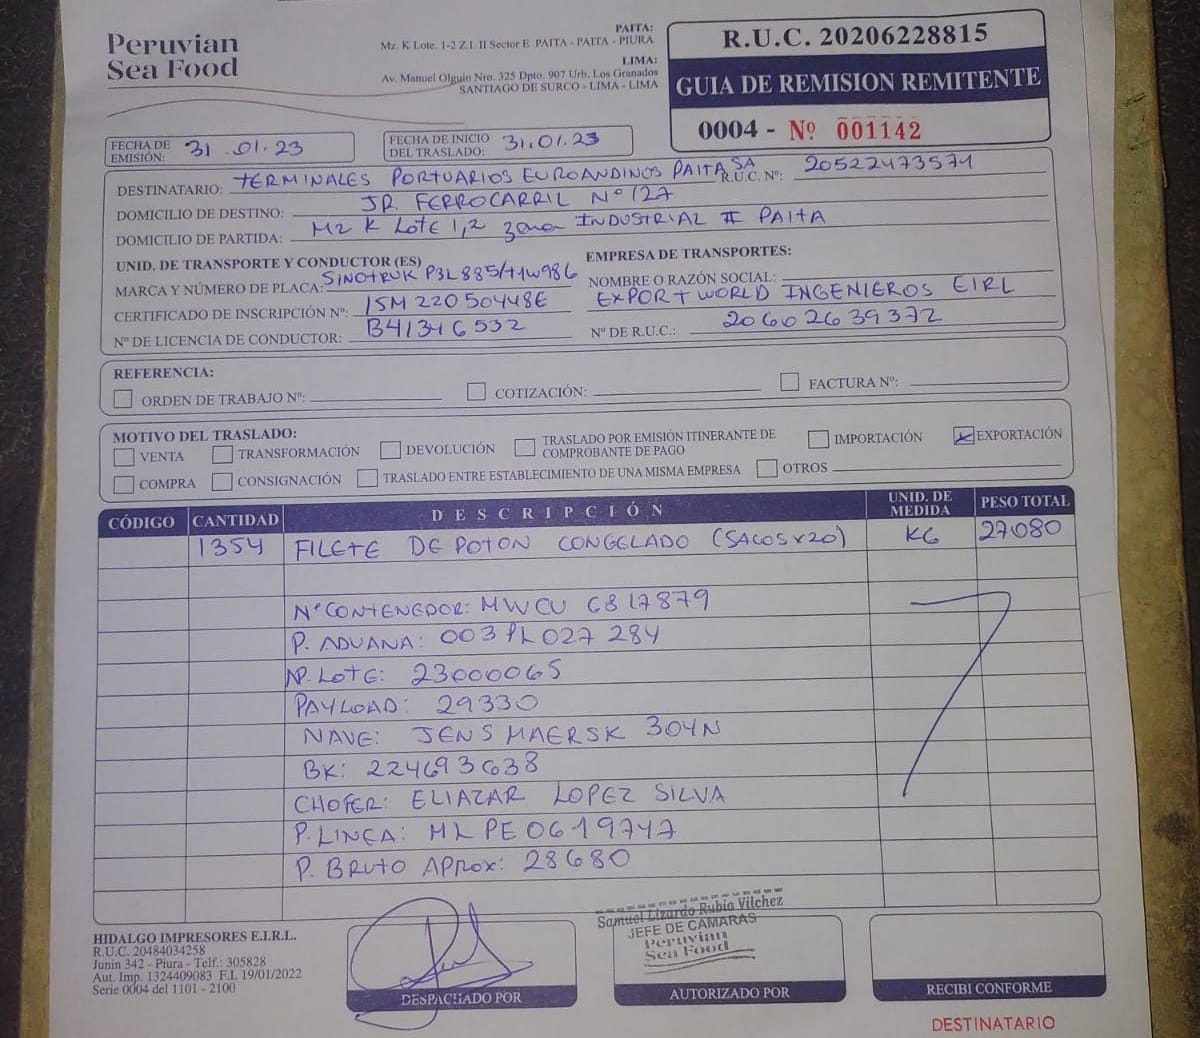 Peruvian
Sea Food
PAITA:
Mz. K Lote. 1-2 Z.I. II Sector E PAITA - PAITA - PIURA
LIMA:
Av. Manuel Olguin Nro. 325 Dpto. 907 Urb. Los Granados
SANTIAGO DE SURCO - LIMA - LIMA
R.U.C. 20206228815
GUIA DE REMISION REMITENTE
0004 - Nº 001142
FECHA DE EMISIÓN: 31.01.23
FECHA DE INICIO DEL TRASLADO: 31.01.23
DESTINATARIO: TERMINALES PORTUARIOS EUROANDINOS PAITA SA R.U.C. Nº: 20522473571
DOMICILIO DE DESTINO: JR. FERROCARRIL Nº 127
DOMICILIO DE PARTIDA: Mz K Lote 1,2 zona INDUSTRIAL II PAITA
UNID. DE TRANSPORTE Y CONDUCTOR (ES)
MARCA Y NÚMERO DE PLACA: SINOTRUK P3L885/T1W986
CERTIFICADO DE INSCRIPCIÓN Nº: 15M22050448E
Nº DE LICENCIA DE CONDUCTOR: B41346532
EMPRESA DE TRANSPORTES:
NOMBRE O RAZÓN SOCIAL:
EXPORT WORLD INGENIEROS EIRL
Nº DE R.U.C.: 20602639372
REFERENCIA:
ORDEN DE TRABAJO Nº: COTIZACIÓN: FACTURA Nº:
MOTIVO DEL TRASLADO:
VENTA TRANSFORMACIÓN DEVOLUCIÓN TRASLADO POR EMISIÓN ITINERANTE DE COMPROBANTE DE PAGO IMPORTACIÓN EXPORTACIÓN
COMPRA CONSIGNACIÓN TRASLADO ENTRE ESTABLECIMIENTO DE UNA MISMA EMPRESA OTROS
CÓDIGO CANTIDAD DESCRIPCIÓN UNID. DE MEDIDA PESO TOTAL
1354 FILETE DE POTON CONGELADO (SACOS x 20) KG 27080
Nº CONTENEDOR: MWCU 6817879
P. ADUANA: 003PL027284
Nº. LOTE: 23000065
PAYLOAD: 29330
NAVE: JENS MAERSK 304N
BK: 224693638
CHOFER: ELIAZAR LOPEZ SILVA
P. LINEA: ML PE0619747
P. BRUTO APROX: 28680
HIDALGO IMPRESORES E.I.R.L.
R.U.C. 20484034258
Junin 342 - Piura - Telf.: 305828
Aut. Imp. 1324409083 F.I. 19/01/2022
Serie 0004 del 1101 - 2100
DESPACHADO POR
Samuel Lizardo Rubio Vilchez
JEFE DE CAMARAS
Peruvian
Sea Food
AUTORIZADO POR
RECIBI CONFORME
DESTINATARIO